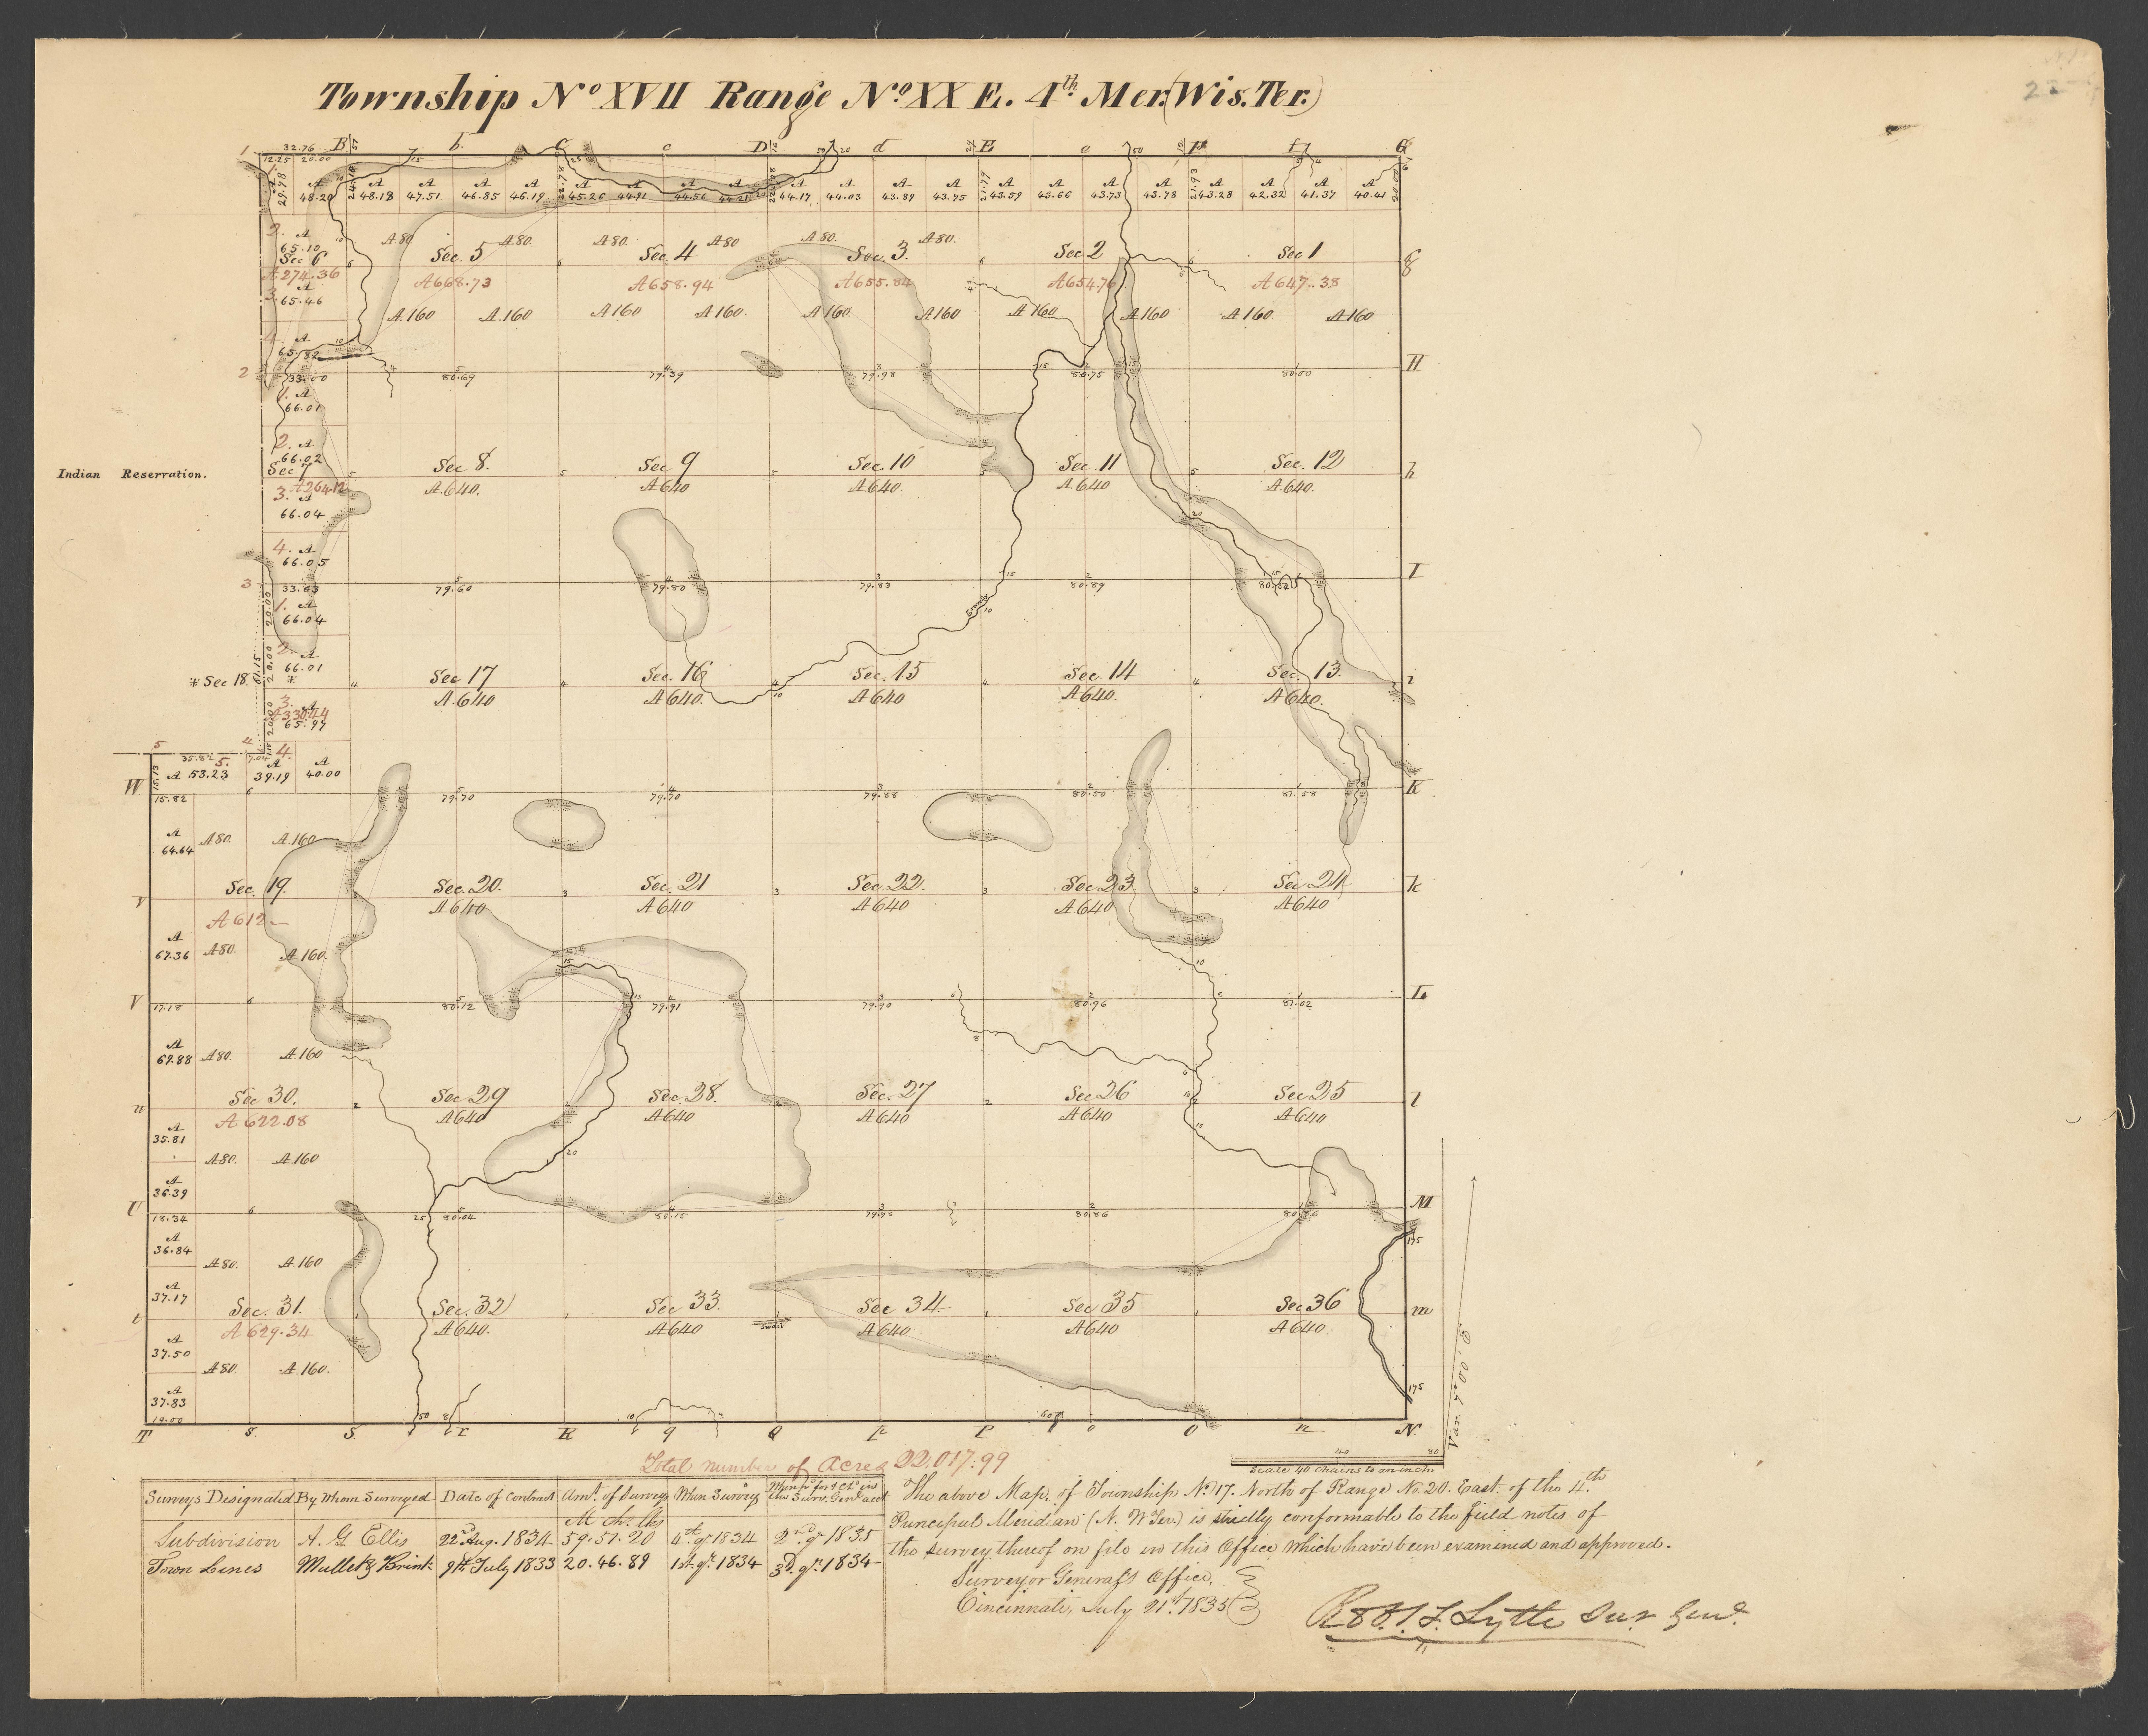 Township No XVII Range No. XX E. 4th Mer. (Wis. Ter.)
1 32.76 B b. C c D d E e F f G
12.25 20.00
29.78 48.20 48.18 47.51 46.85 46.19 45.26 44.91 44.56 44.21 44.17 44.03 43.89 43.75 43.59 43.66 43.73 43.78 43.28 42.32 41.37 40.41
2. A 65.10 A 80 A 80. A 80. A 80 A 80. A 80.
Sec 6 Sec. 5 Sec. 4 Sec. 3. Sec 2 Sec 1 g
A 274.36 A 668.73 A 658.94 A 655.84 A 654.76 A 647.38
3. A 65.46 A. 160 A. 160 A 160 A 160. A 160 A 160 A 160 A 160 A 160. A 160
4. A 65.82
2 33.00 80.69 79.39 79.98 80.75 80.00 H
1. A 66.01
2. A 66.02
Indian Reservation. Sec 7 Sec 8. Sec 9 Sec. 10 Sec. 11 Sec. 12 h
A 264.12 A 640. A 640 A 640. A 640 A 640.
3. A 66.04
4. A 66.05
3 33.03 79.60 79.80 79.83 80.89 I
20.00 1. A 66.04
2. A 66.01
* Sec 18. 61.15 20.00 * Sec 17 Sec. 16 Sec. 15 Sec. 14 Sec. 13. i
3. A 330.44 A 640 A 640. A 640 A 640. A 640.
20.00 65.97
5 4 4.
35.82 5. 7.04
15.13 A 53.23 A 39.19 A 40.00
W 15.82 79.70 79.70 79.88 80.50 81.58 K
A 64.64 A 80. A. 160
Sec. 19. Sec. 20. Sec. 21 Sec. 22. Sec 23 Sec 24 k
v A 612 A 640 A 640 A 640 A 640 A 640
A 67.36 A 80. A 160.
V 17.18 80.12 79.91 79.90 80.96 81.02 L
A 69.88 A 80. A. 160
Sec 30. Sec 29 Sec. 28. Sec. 27 Sec 26 Sec 25
u A 622.08 A 640 A 640 A 640 A 640 A 640 l
A 35.81
A 80. A. 160
A 36.39
U 18.34 80.04 80.15 79.95 80.86 M
A 36.84 A 80. A. 160
A 37.17
Sec. 31. Sec. 32 Sec 33. Sec 34 Sec 35 Sec 36 m
t A 629.34 A 640. A 640 A 640 A 640 A 640.
A 37.50 A 80 A. 160.
A 37.83
19.00
T s. S r R q Q p P o O n N.
Var. 7° 00' E
Total number of Acres 22,017.99
40 80
Scale 40 chains to an inch
Surveys Designated By Whom Surveyed Date of Contract Amt. of Survey When Survey
M. ch. lks
Subdivision A. G. Ellis 22d Aug. 1834 59.57.20 4th qr 1834 2nd qr 1835
Town Lines Mullet & Brink 9th July 1833 20.46.89 1st qr 1834 3d qr 1834
The above Map of Township No 17. North of Range No. 20. East. of the 4th
Principal Meridian (N. W Ter.) is strictly conformable to the field notes of
the survey thereof on file in this Office, which have been examined and approved.
Surveyor General's Office,
Cincinnati, July 21st 1835
Robt. T. Lytle Sur. Genl.